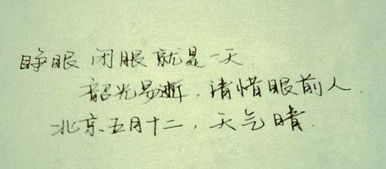 睁眼闭眼就是一天
韶光易逝，请惜眼前人
北京五月十二，天气晴